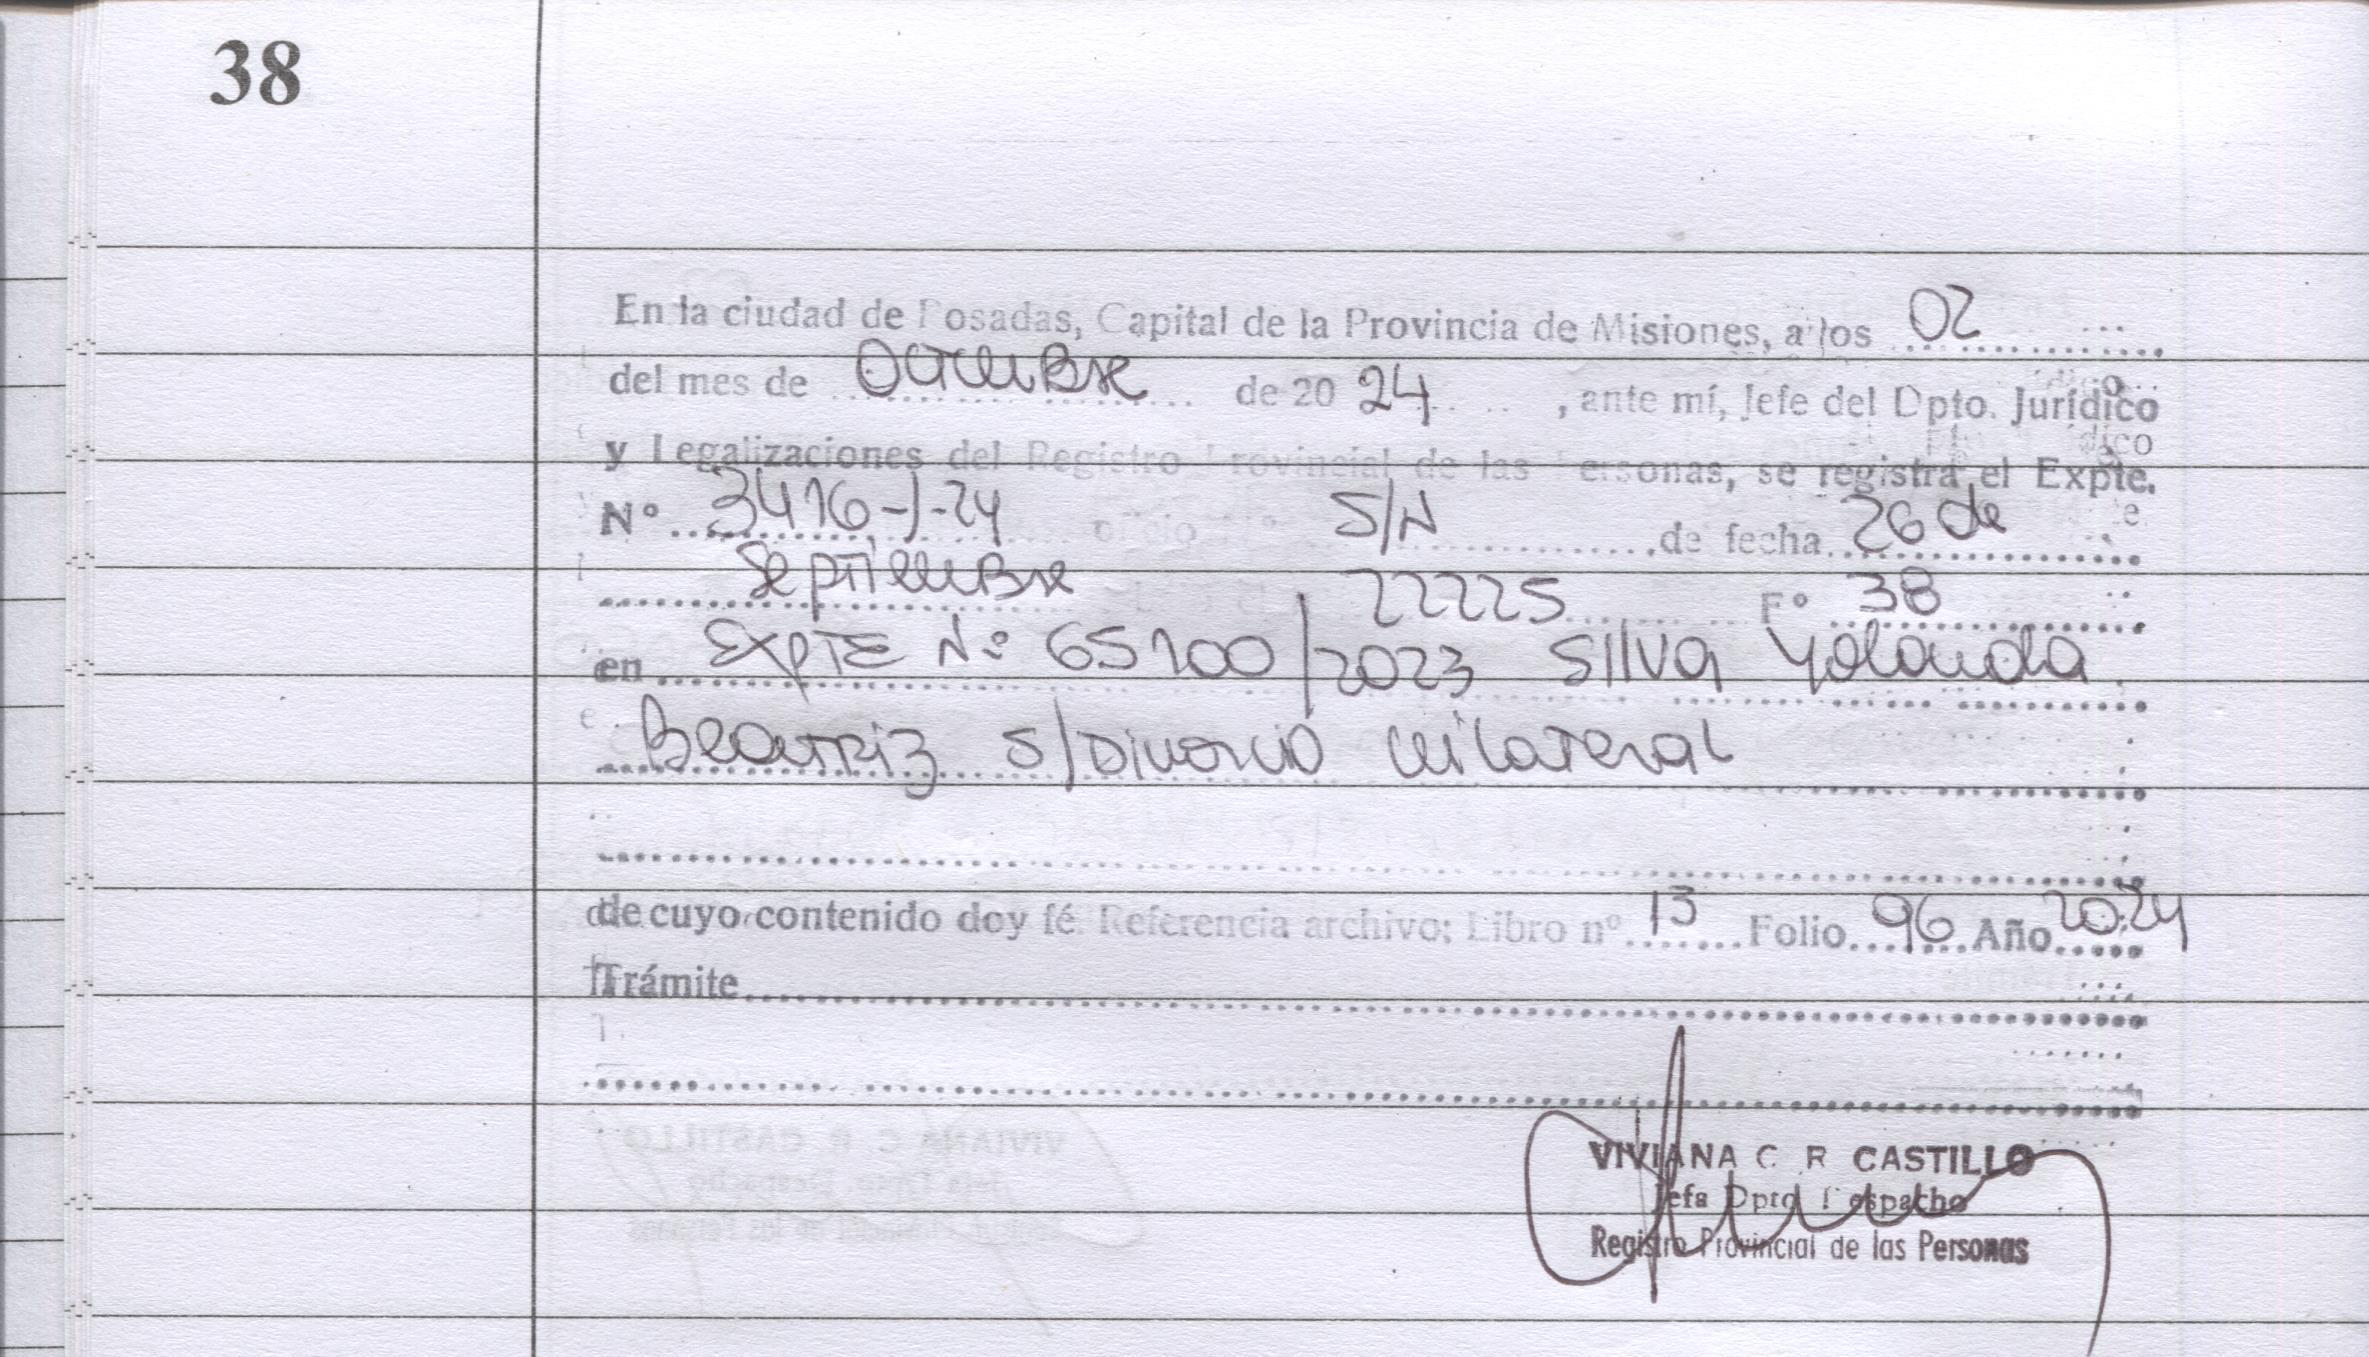 38
En la ciudad de Posadas, Capital de la Provincia de Misiones, a los 02
del mes de Octubre de 20 24, ante mí, Jefe del Dpto. Jurídico
y Legalizaciones del Registro Provincial de las Personas, se registra el Expte.
Nº 3416-J-24 oficio S/N de fecha 26 de
Septiembre 22225 Fº 38
en Expte Nº 65100/2023 Silva Yolanda
Beatriz S/Divorcio Unilateral
de cuyo contenido doy fé Referencia archivo: Libro nº 13 Folio 96 Año 2024
Trámite
VIVIANA C. R. CASTILLO
Jefa Dpto Despacho
Registro Provincial de las Personas